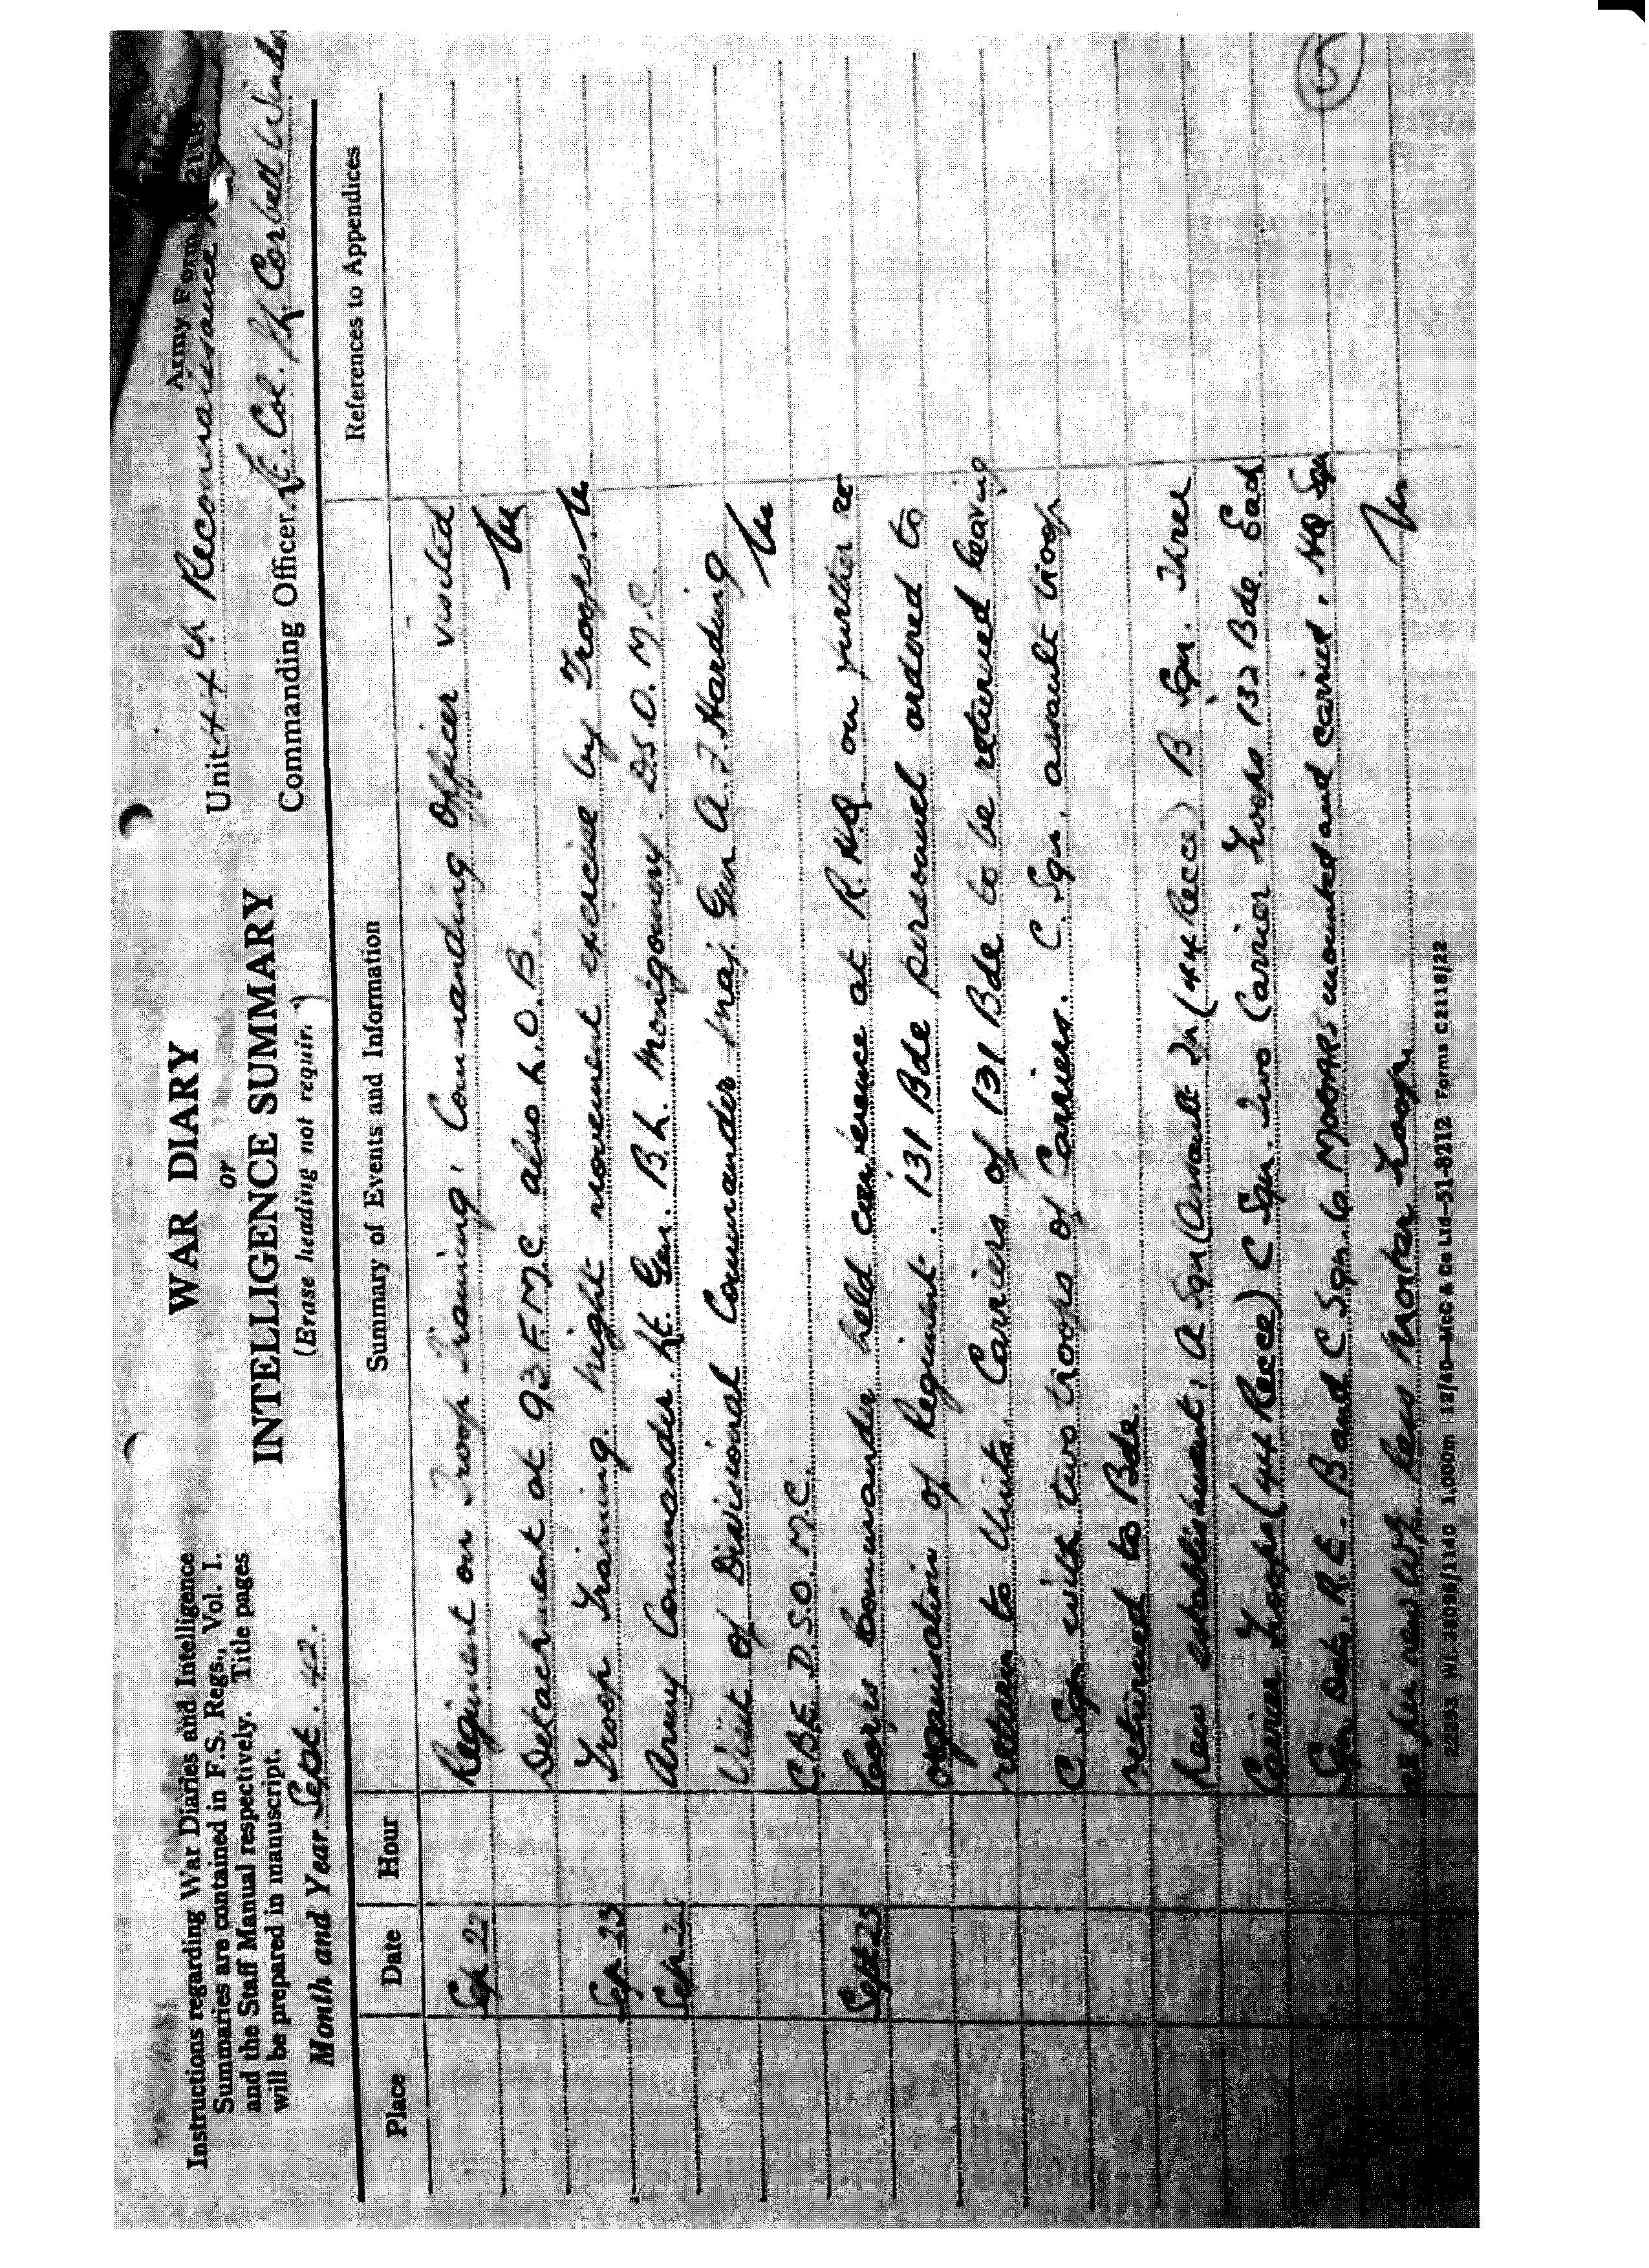 Army Form
WAR DIARY
or
INTELLIGENCE SUMMARY
(Erase heading not requir. )
Instructions regarding War Diaries and Intelligence
Summaries are contained in F.S. Regs., Vol. I.
and the Staff Manual respectively. Title pages
will be prepared in manuscript.
Month and Year Sept. 42.
Unit 44th Reconnaissance
Commanding Officer Lt. Col. Corbett Winder
Place Date Hour Summary of Events and Information References to Appendices
Sep 22 Regiment on Troop Training. Commanding Officer visited
Detachment at 93 F.M.C. also L.O.B.
Sep 23 Troop Training. Night movement exercise by Troops
Sep Army Commander. Lt. Gen. B.L. Montgomery D.S.O. M.C.
Visit of Divisional Commander Maj. Gen A.F. Harding
C.B.E. D.S.O. M.C.
Sept 25 Corps Commander held conference at R.H.Q. on further re
organisation of Regiment. 131 Bde personnel ordered to
return to Units. Carriers of 131 Bde to be retained leaving
C Sqn with two troops of Carriers. C. Sqn. assault troop
returned to Bde.
New establishment. A Sqn (Assault Tn (44 Recce) B Sqn. Three
Carrier Troops (44 Recce) C Sqn. Two Carrier Troops 132 Bde. Each
Sqn Det. R.E. B and C Sqn. 6 MOOARS mounted and carried. HQ Sqn
as per new less Mortar Troop
5
22293 Wt. 1,000m 12/40 McC & Co Ltd-51-8212 Forms C2118/22